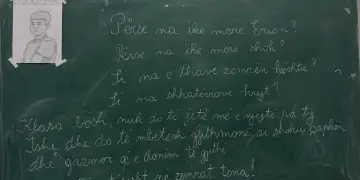 Përse na ike more Erson?
Përse na ike more shok?
Si na e thave zemrën kështu?
Si na shkatërrove krejt?
Klasa bosh nuk do të jetë më e njejtë pa ty
Ishe dhe do të mbetesh gjithmonë ai shoku
dhe gazmor që e donim të gjithë
në zemrat tona!